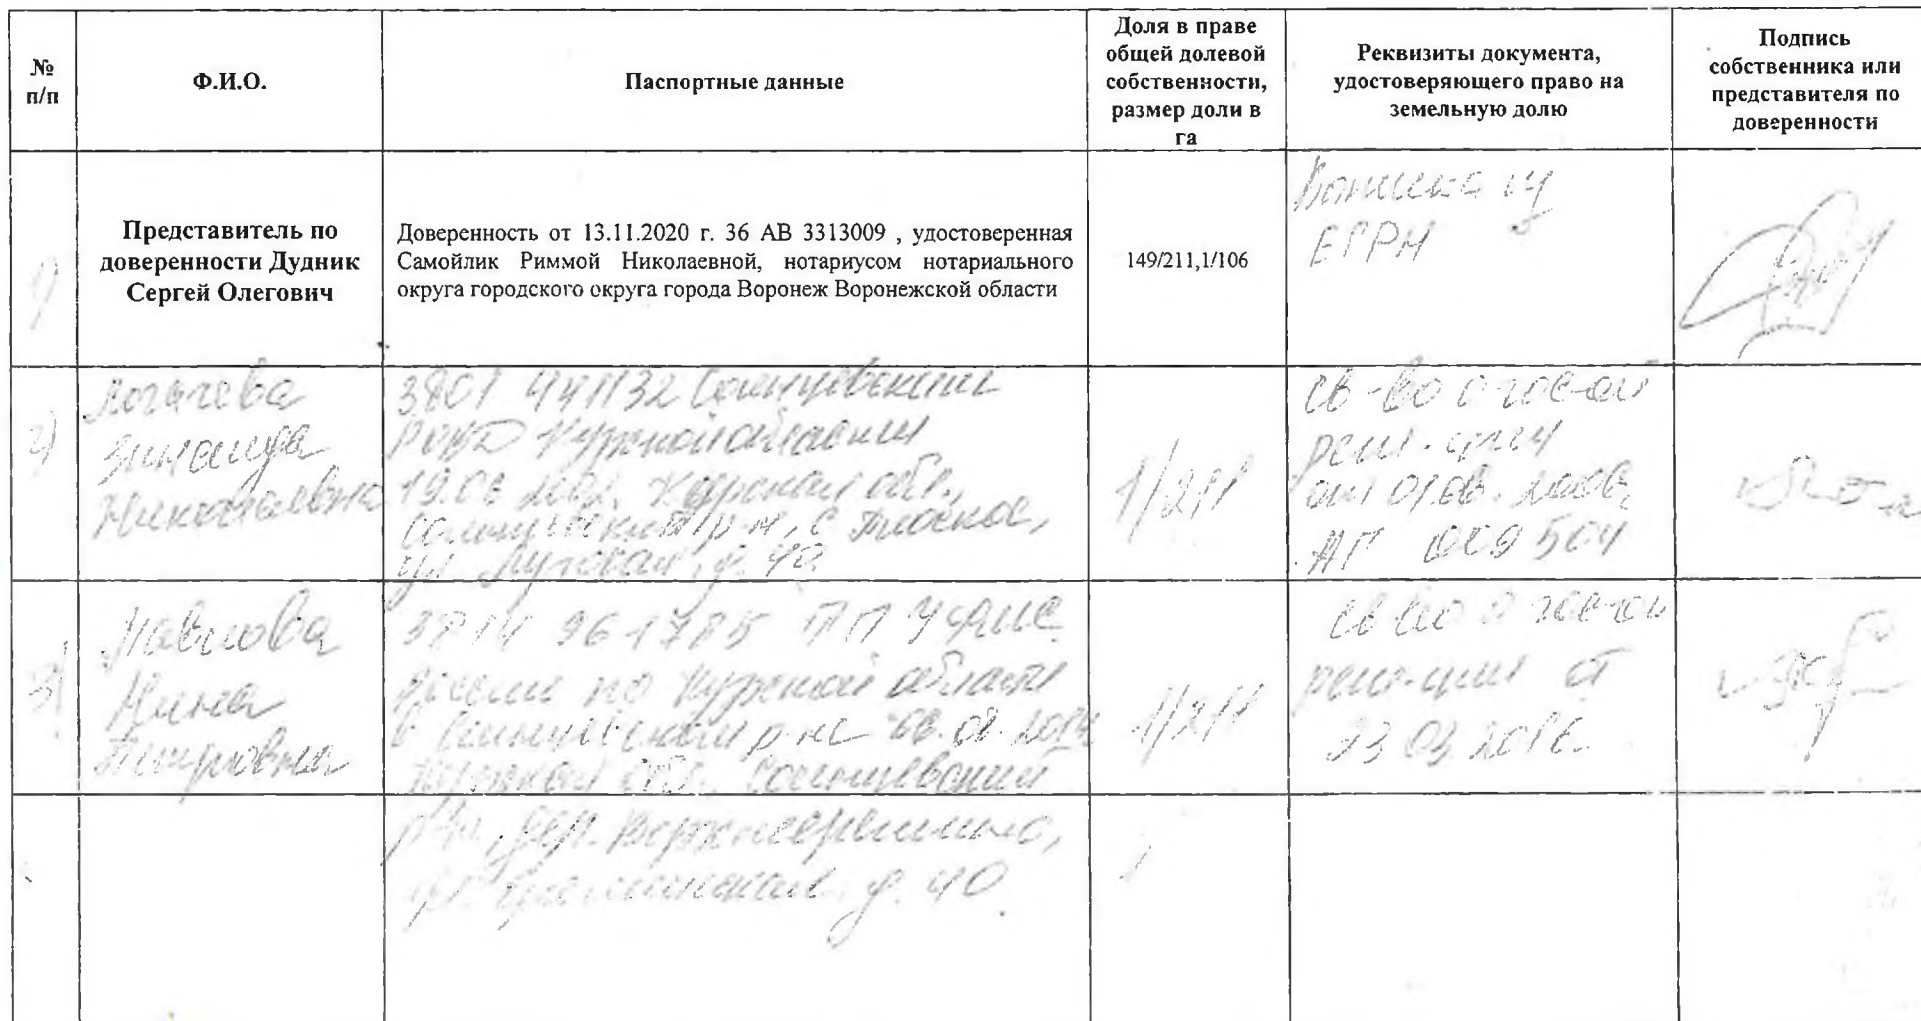 № п/п
Ф.И.О.
Паспортные данные
Доля в праве
общей долевой
собственности,
размер доли в
га
Реквизиты документа,
удостоверяющего право на
земельную долю
Подпись
собственника или
представителя по
доверенности
1)
Представитель по
доверенности Дудник
Сергей Олегович
Доверенность от 13.11.2020 г. 36 АВ 3313009 , удостоверенная
Самойлик Риммой Николаевной, нотариусом нотариального
округа городского округа города Воронеж Воронежской области
149/211,1/106
Выписка из
ЕГРН
2)
Логачева
Зинаида
Николаевна
3801 441132 Солнцевским
РОВД Курской области
Курская обл.,
Солнцевский р-н, с
ул Луговая, д.
1/211
св-во о гос-ой
рег-ции
АП 009504
3)
Нина
3814 961785 УФМС
России по Курской области
в Солнцевском р-не 2014
Курская обл., Солнцевский
р-н,
д. 40
1/211
св-во о гос-ой
рег-ции от
23.03.2016